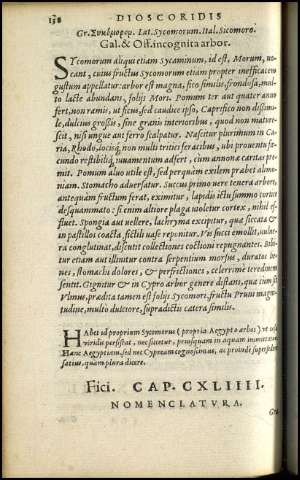 138 DIOSCORIDIS
Gr. Συκόμορον. Lat. Sycomorum. Ital. Sicomoro.
Gal. & Off. incognita arbor.
SYcomorum aliqui etiam Sycaminum, id est, Morum, uo-
cant, cuius fructus Sycomorum etiam propter inefficacem
gustum appellatur: arbor est magna, fico similis, frondosa, mul
to lacte abundans, folijs Mori. Pomum ter aut quater anno
fert, non ramis, ut ficus, sed caudice ipso, Caprifico non dissimi
le, dulcius grossis, sine granis interioribus, quod non mature-
scit, nisi ungue aut ferro scalptur. Nascitur plurimum in Ca
ria, Rhodo, locisq́ non multi tritici feracibus, ubi prouentu fa-
cundo iuuamentum adfert, cum annonæ caritas pre
mit. Pomum aluo utile est, sed perquàm exilem præbet alimo
niam. Stomacho aduersatur. Succus primo uere tenera arbore,
antequàm fructum ferat, eximitur, lapidis ictu summo cortice
desquammato: si enim altiore plaga uioletur cortex, nihil ef-
fluet. Spongia aut uellere, lachryma excipitur, quæ siccata &
in pastillos coacta, fictili uase reponitur. Vis succi emollit, uulne
ra conglutinat, discutit collectiones coctioni repugnantes. Bibi
tur etiam aut illinitur contra serpentium morsus, duratos lie-
nes, stomachi dolores, & perfrictiones, celerrimè teredinem
sentit. Gignitur & in Cypro arbor genere distans, quæ cum sit
Vlmus, prædita tamen est folijs Sycomori, fructu Pruni magni-
tudine, multo dulciore, supradictis cætera similis.
HAbet id proprium Sycomorus (propria Aegypto arbor) ut
uiridis persistat, nec siccetur, priusquàm in aquam immittatur
Hanc Aegyptiam, sed nec Cypream cognoscimus, ac proinde
satius, quàm plura dicere.
Fici. CAP. CXLIIII.
NOMENCLATVRA.